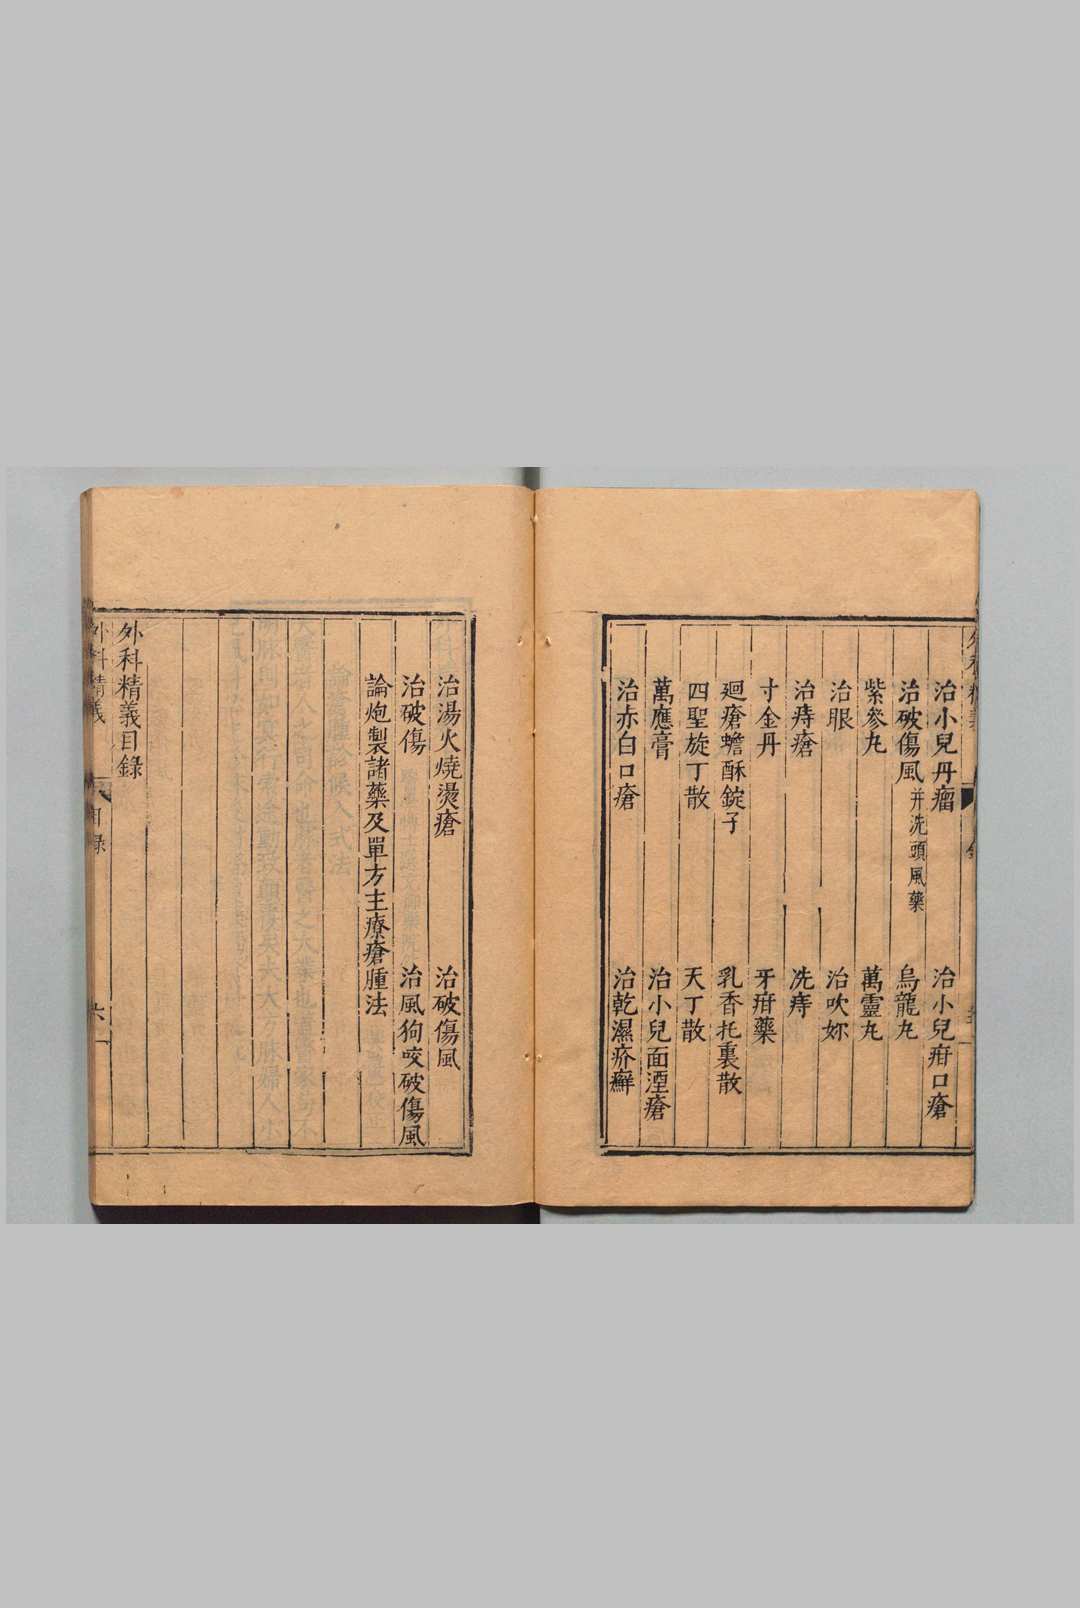 治小兒丹瘤　治小兒疳口瘡
治破傷風并洗頭風藥　烏龍丸
紫參丸　萬靈丸
治眼　治吹妳
治痔瘡　洗痔
寸金丹　牙疳藥
廻瘡蟾酥錠子　乳香托裏散
四聖旋丁散　天丁散
萬應膏　治小兒面湮瘡
治赤白口瘡　治乾濕疥癬
治湯火燒燙瘡　治破傷風
治破傷　治風狗咬破傷風
論炮製諸藥及單方主療瘡腫法
外科精義目錄
外科精義　目錄　六